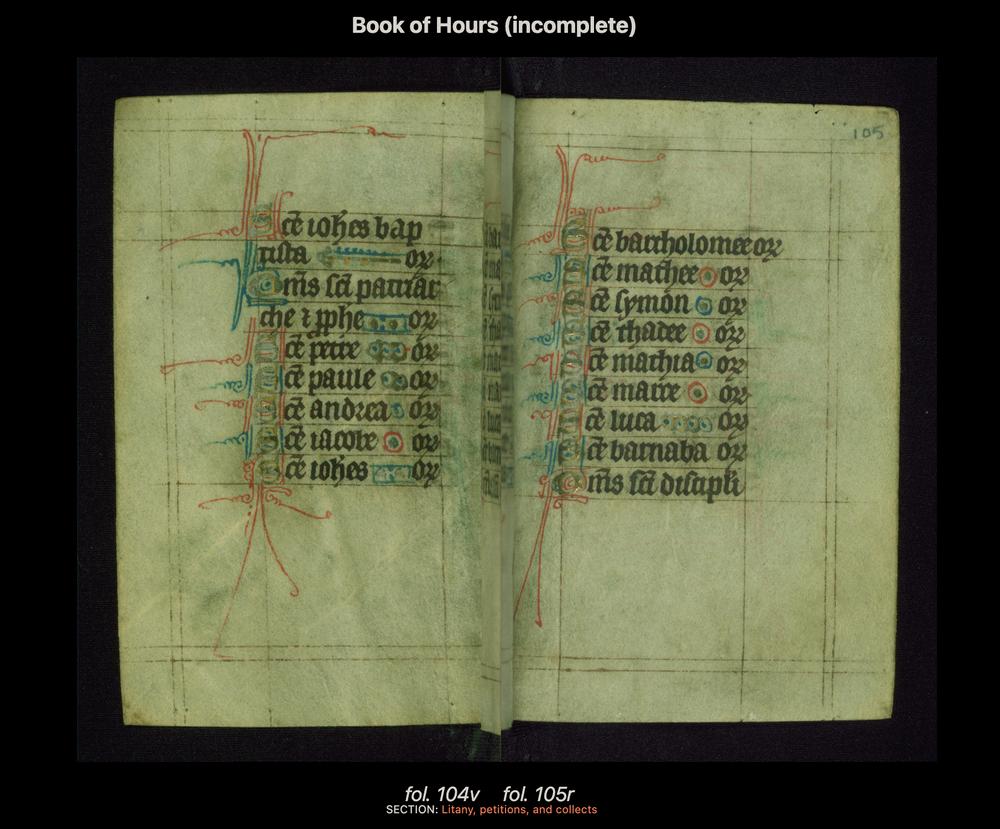 Book of Hours (incomplete)
105
Scē iohēs bap
tista or
Om̄s scī patriar
che ⁊ ꝓphe or
Scē petre or
Scē paule or
Scē andrea or
Scē iacobe or
Scē iohēs or
Scē bartholomee or
Scē mathee or
Scē symon or
Scē thadee or
Scē mathia or
Scē marce or
Scē luca or
Scē barnaba or
Om̄s scī discipli
fol. 104v fol. 105r
SECTION: Litany, petitions, and collects